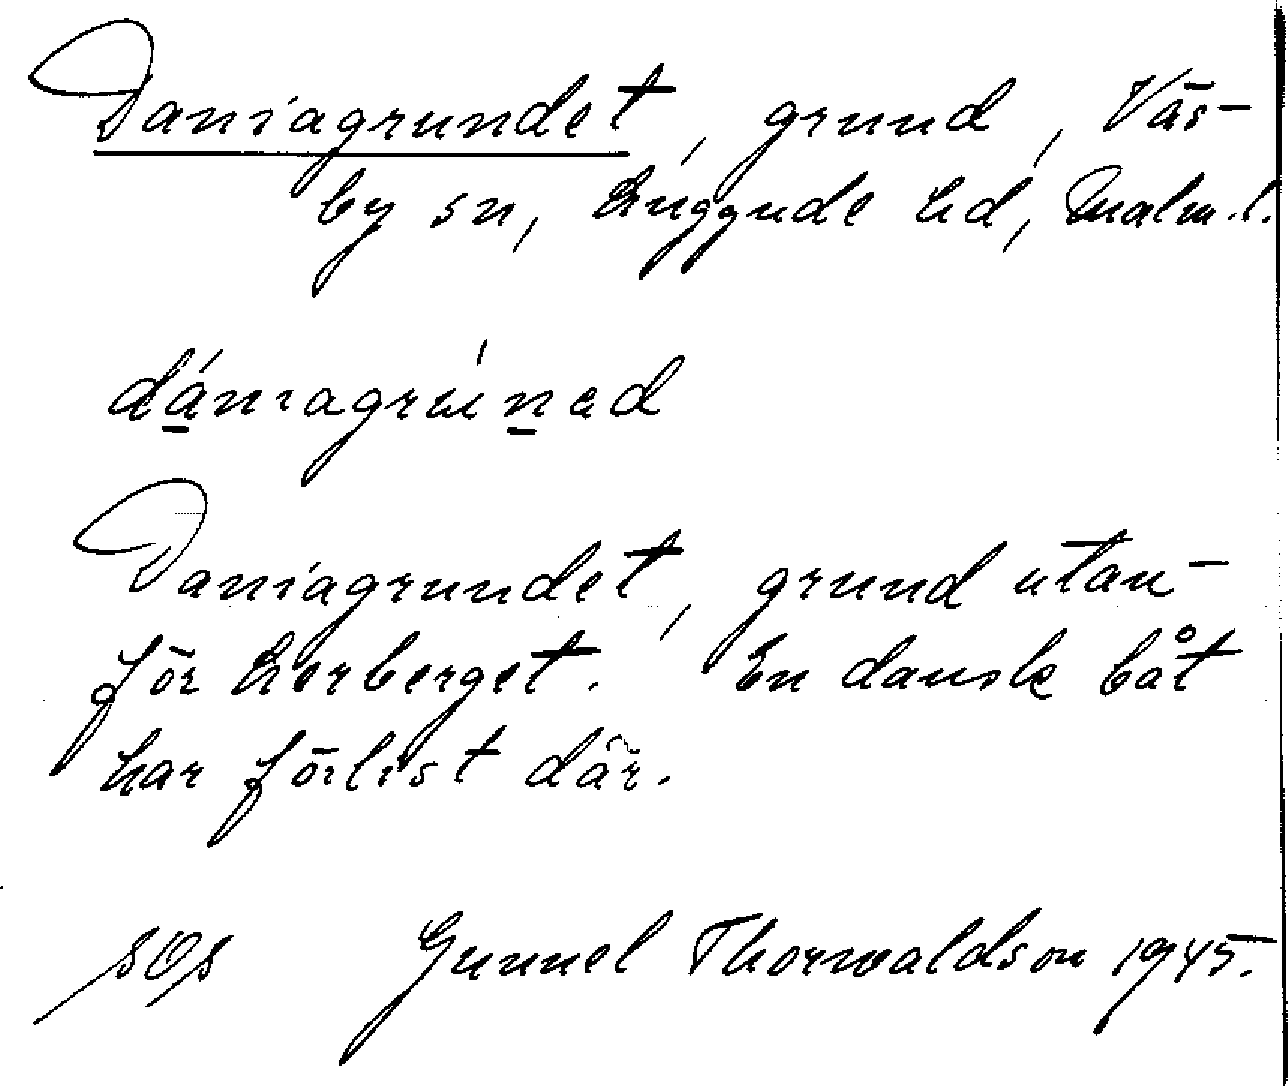 Daniagrundet, grund, Väs-
by sn, Luggude hd, Malm.l.
dániagrúnad
Daniagrundet, grund utan-
för Lerberget. En dansk båt
har förlist där.
Gunnel Thorwaldson 1945.